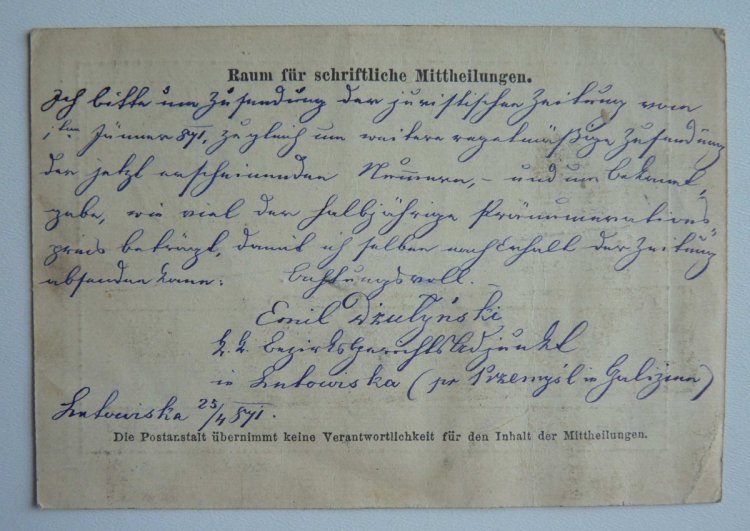 Raum für schriftliche Mittheilungen.
Ich bitte um Zusendung der juristischen Zeitung vom
1ten Jänner 871, zugleich um weitere regelmäßige Zusendung
der jetzt erscheinenden Nummern, – und um Bekannt„
gabe, wie viel der halbjährige Pränumerations„
preis beträgt, damit ich selben nach Erhalt der Zeitung
absenden kann.
Achtungsvoll.
Emil Dzulyński
k.k. Bezirksgerichts Adjunkt
in Lutowiska (per Przemyśl in Galizien)
Lutowiska 25/4 871.
Die Postanstalt übernimmt keine Verantwortlichkeit für den Inhalt der Mittheilungen.